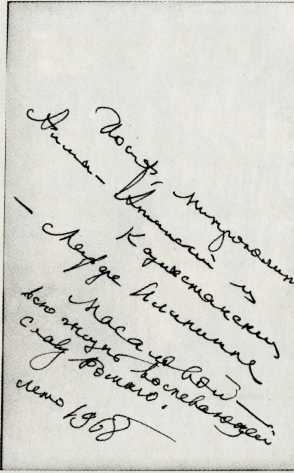 Иосиф, Митрополит
Алма-Атинский и
Казахстанский
— Лидде Ильинишне
Масаловой —
всю жизнь воспевающей
славу Божию.
лето 1968